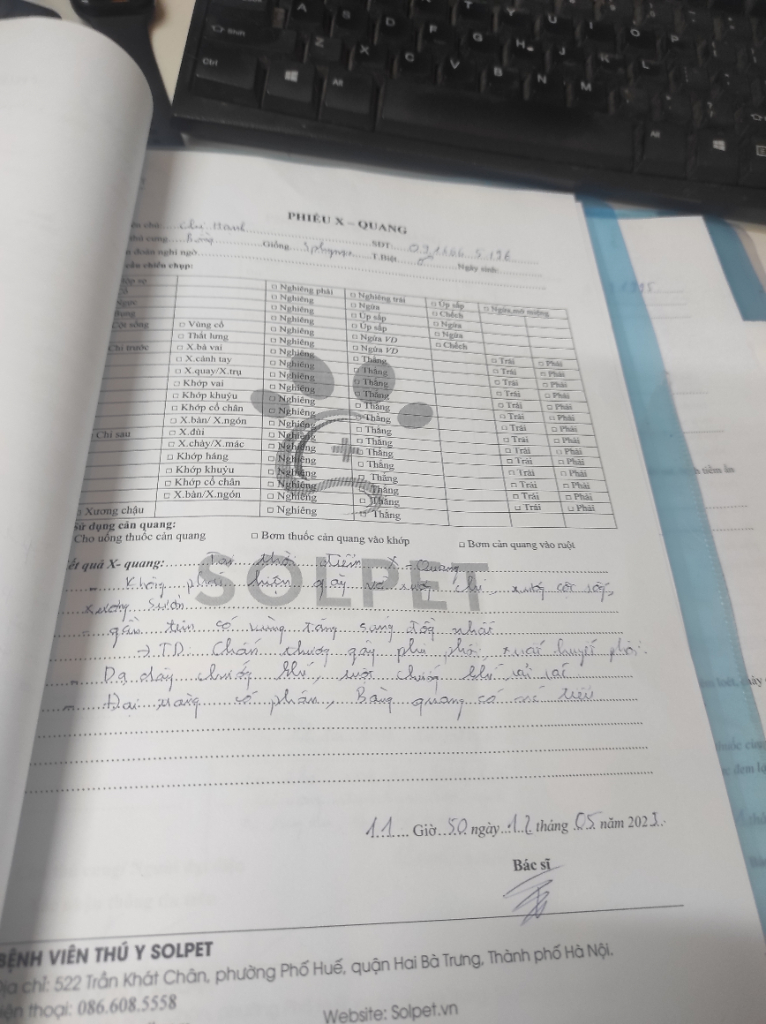 PHIẾU X – QUANG
chủ: Chị Hạnh
thú cưng: Giống: Sphynx SĐT:
đoán nghi ngờ T.Biệt: ♂ Ngày sinh:
cầu chiếu chụp:
□ Nghiêng phải □ Nghiêng trái □ Úp sấp □ Ngửa mở miệng
□ Nghiêng □ Ngửa □ Chếch
□ Nghiêng □ Úp sấp □ Ngửa
Cột sống □ Vùng cổ □ Nghiêng □ Úp sấp □ Ngửa
□ Thắt lưng □ Nghiêng □ Ngửa VD □ Chếch
Chi trước □ X.bả vai □ Nghiêng □ Ngửa VD
□ X.cánh tay □ Nghiêng □ Thẳng □ Trái □ Phải
□ X.quay/X.trụ □ Nghiêng □ Thẳng □ Trái □ Phải
□ Khớp vai □ Nghiêng □ Thẳng □ Trái □ Phải
□ Khớp khuỷu □ Nghiêng □ Thẳng □ Trái □ Phải
□ Khớp cổ chân □ Nghiêng □ Thẳng □ Trái □ Phải
□ X.bàn/ X.ngón □ Nghiêng □ Thẳng □ Trái □ Phải
Chi sau □ X.đùi □ Nghiêng □ Thẳng □ Trái □ Phải
□ X.chày/X.mác □ Nghiêng □ Thẳng □ Trái □ Phải
□ Khớp háng □ Nghiêng □ Thẳng □ Trái □ Phải
□ Khớp khuỷu □ Nghiêng □ Thẳng □ Trái □ Phải
□ Khớp cổ chân □ Nghiêng □ Thẳng □ Trái □ Phải
□ X.bàn/X.ngón □ Nghiêng □ Thẳng □ Trái □ Phải
□ Xương chậu □ Nghiêng □ Thẳng
Sử dụng cản quang:
Cho uống thuốc cản quang □ Bơm thuốc cản quang vào khớp □ Bơm cản quang vào ruột
Kết quả X- quang: Tại thời điểm X - Quang
- Không phát hiện gãy vỡ xương chi, xương cột sống,
xương sườn
- gần tim có vùng tăng sáng đồng nhất
→ TD: Chấn thương gây phù phổi, xuất huyết phổi.
- Dạ dày chướng khí, ruột chướng khí rải rác
- Đại tràng có phân, Bàng quang có nước tiểu
SOLPET
11 Giờ 50 ngày 12 tháng 05 năm 2023
Bác sĩ
BỆNH VIỆN THÚ Y SOLPET
Địa chỉ: 522 Trần Khát Chân, phường Phố Huế, quận Hai Bà Trưng, Thành phố Hà Nội.
Điện thoại: 086.608.5558 Website: Solpet.vn